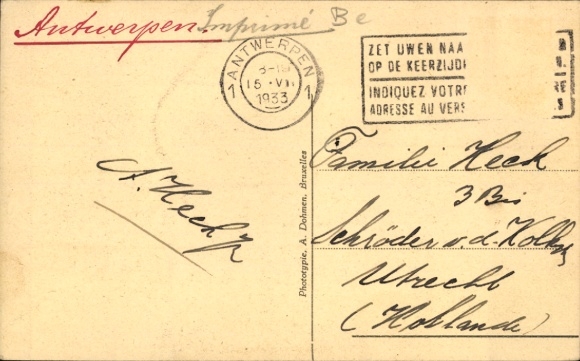 Antwerpen. Imprimé Be
1 ANTWERPEN 1
15 · VII
1933
ZET UWEN NAA
OP DE KEERZIJD
INDIQUEZ VOTR
ADRESSE AU VERS
A. Heck
Phototypie, A. Dohmen, Bruxelles
Familie Heck
3 Bis
Schröder v.d. Kolk
Utrecht
(Hollande)